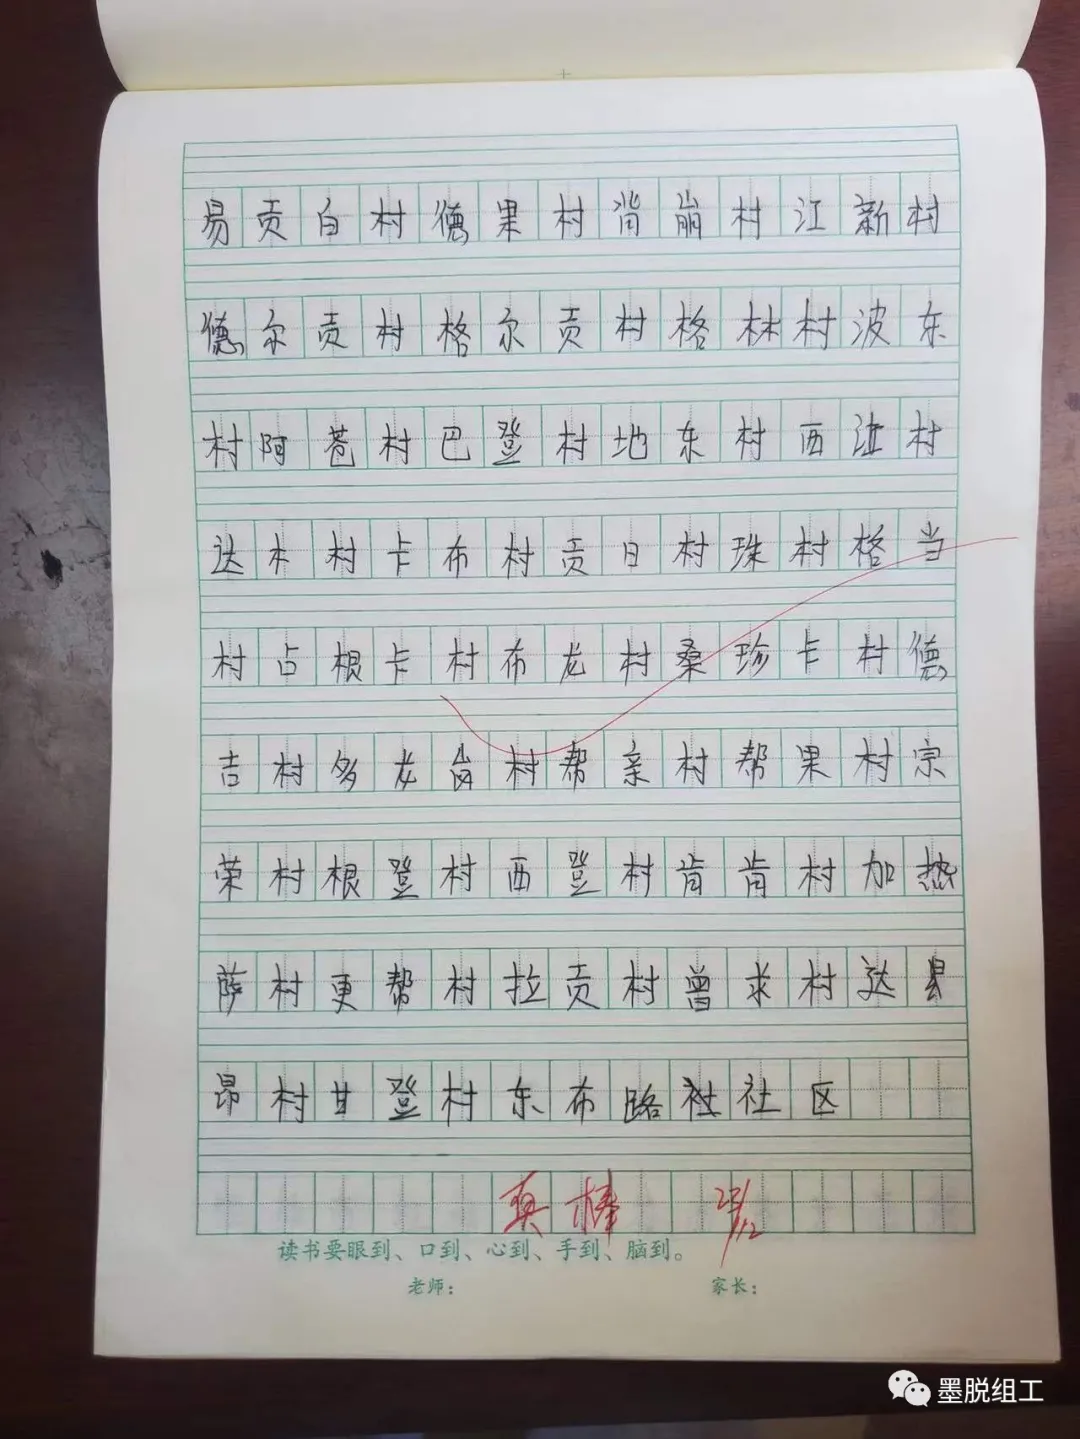 易贡白村德果村背崩村江新村
德尔贡村格尔贡村格林村波东
村阿苍村巴登村地东村西让村
达木村卡布村贡日村珠村格当
村占根卡村布龙村桑珍卡村德
吉村多龙岗村帮亲村帮果村宗
荣村根登村西登村肯肯村加热
萨村更帮村拉贡村曾求村达县
昂村甘登村东布路社社区
真棒 23/12
读书要眼到、口到、心到、手到、脑到。
老师： 家长：
墨脱组工